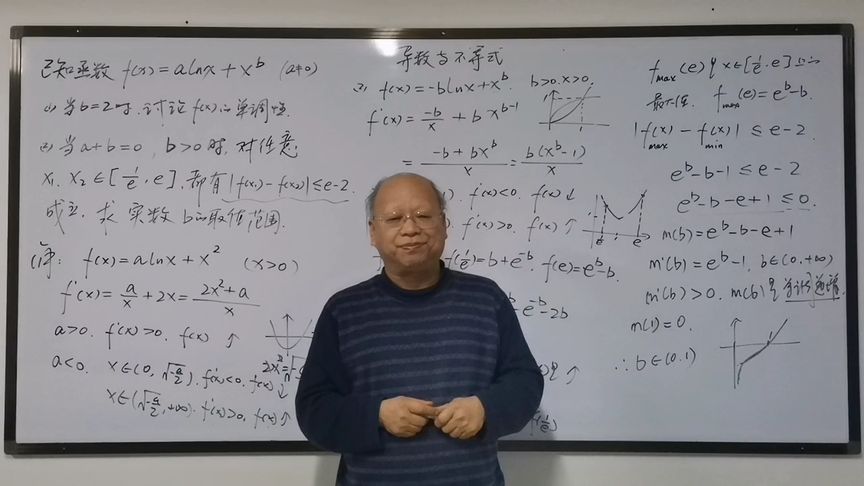 导数与不等式
已知函数 f(x)=alnx+x^b (a≠0)
(1) 当b=2时,讨论f(x)的单调性.
(2) 当a+b=0, b>0时, 对任意
x₁, x₂∈[1/e, e], 都有|f(x₁)-f(x₂)|≤e-2
成立, 求实数b的取值范围.
f(x)=alnx+x² (x>0)
f'(x)=a/x+2x=(2x²+a)/x
a>0. f'(x)>0. f(x) ↑
a<0. x∈(0, √(-a/2)). f'(x)<0. f(x)↓
x∈(√(-a/2), +∞). f'(x)>0. f(x)↑
2x²
(2) f(x)=-blnx+x^b. b>0. x>0.
f'(x)=-b/x+bx^(b-1)
=(-b+bx^b)/x=b(x^b-1)/x
f'(x)<0. f(x)↓
f'(x)>0. f(x)↑
1/e 1 e
f(1/e)=b+e^(-b). f(e)=e^b-b.
e^(-b)-2b
f max (e) x∈[1/e, e]
最大值. f max (e)=e^b-b.
|f(x) max - f(x) min|≤e-2.
e^b-b-1≤e-2
e^b-b-e+1≤0.
m(b)=e^b-b-e+1
m'(b)=e^b-1. b∈(0,+∞)
m'(b)>0. m(b)是单调递增.
m(1)=0.
∴b∈(0.1)